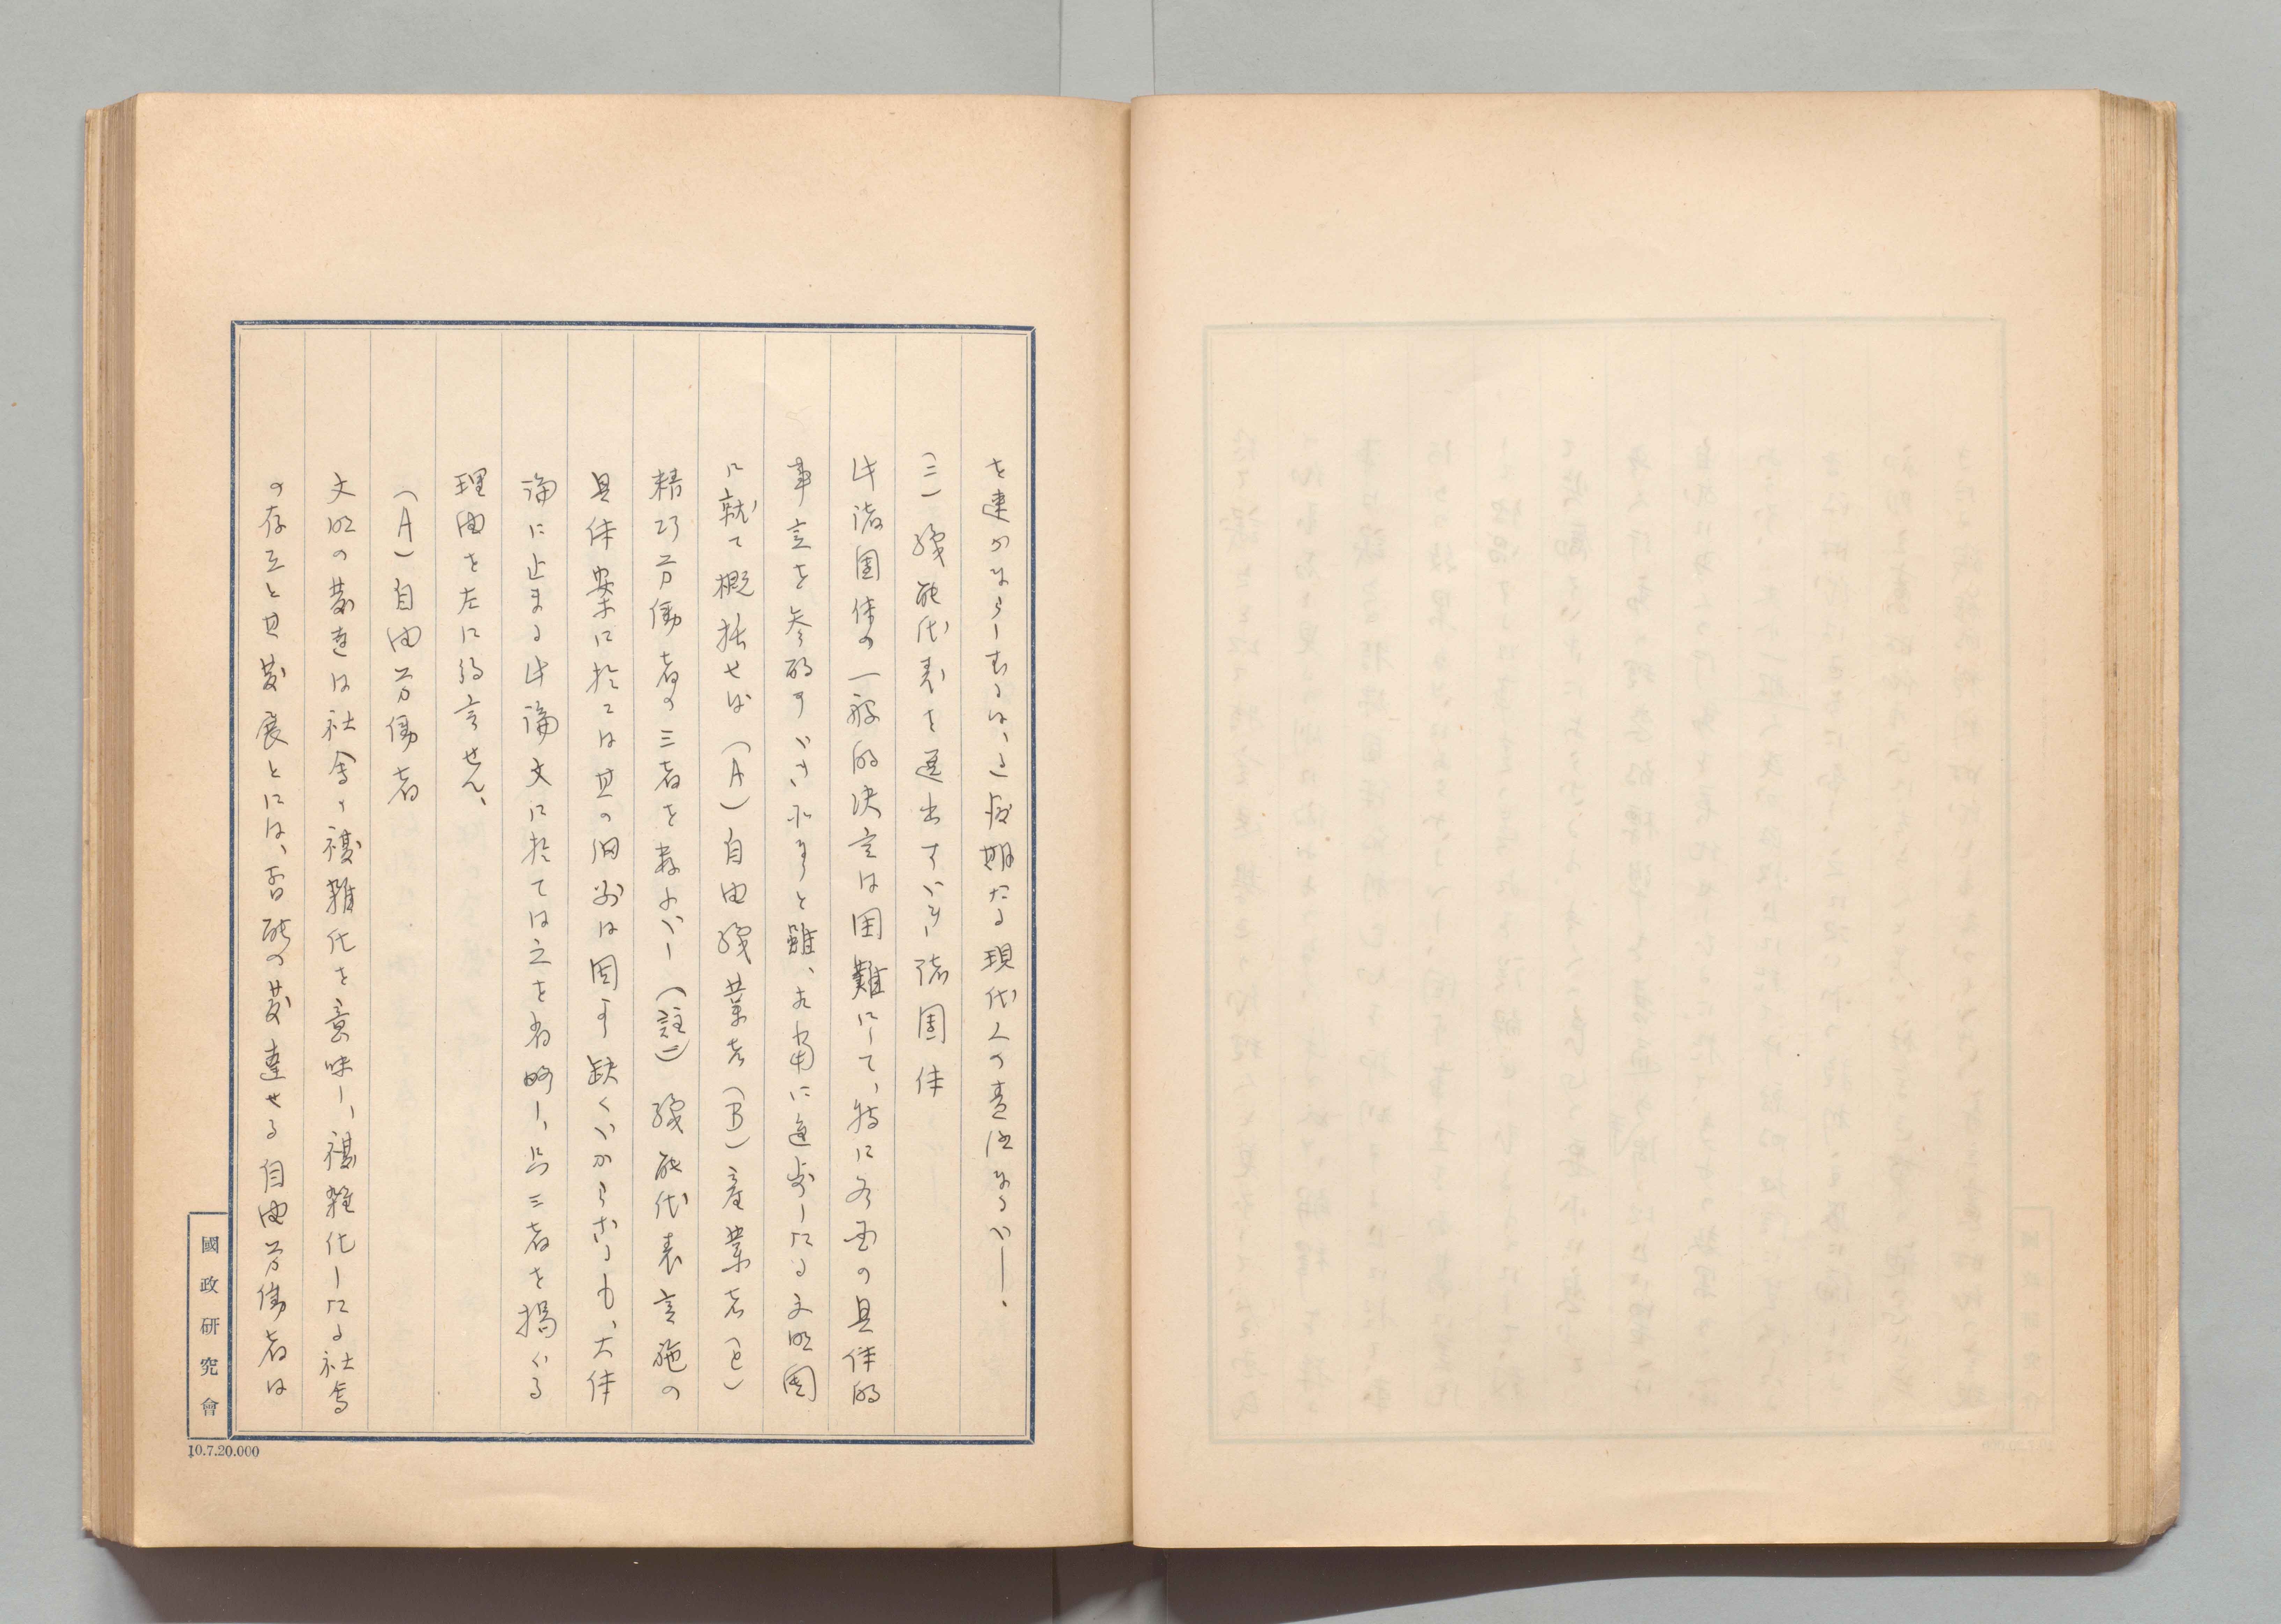 を速かならしむるは、過渡期たる現代人の責任なるべし。
(三) 職能代表を選出すべき諸団体
此諸団体の一般的決定は困難にして、特に各国の具体的
事実を参酌すべきものなりと雖、
に就て概括せば (A) 自由職業者 (B) 産業者 (C)
精巧労働者の三者を数ふべし (註二) 職能代表実施の
具体案に於ては其の細別は固より缺くべからざるも、大体
論に止まる此論文に於ては之を省略し、此三者を掲ぐる
理由を左に約言せん、
(A) 自由労働者
文明の発達は社会の複雑化を意味し、複雑化したる社会
の存立と其発展とには、智能の発達せる自由労働者は
國政研究會
10.7.20.000